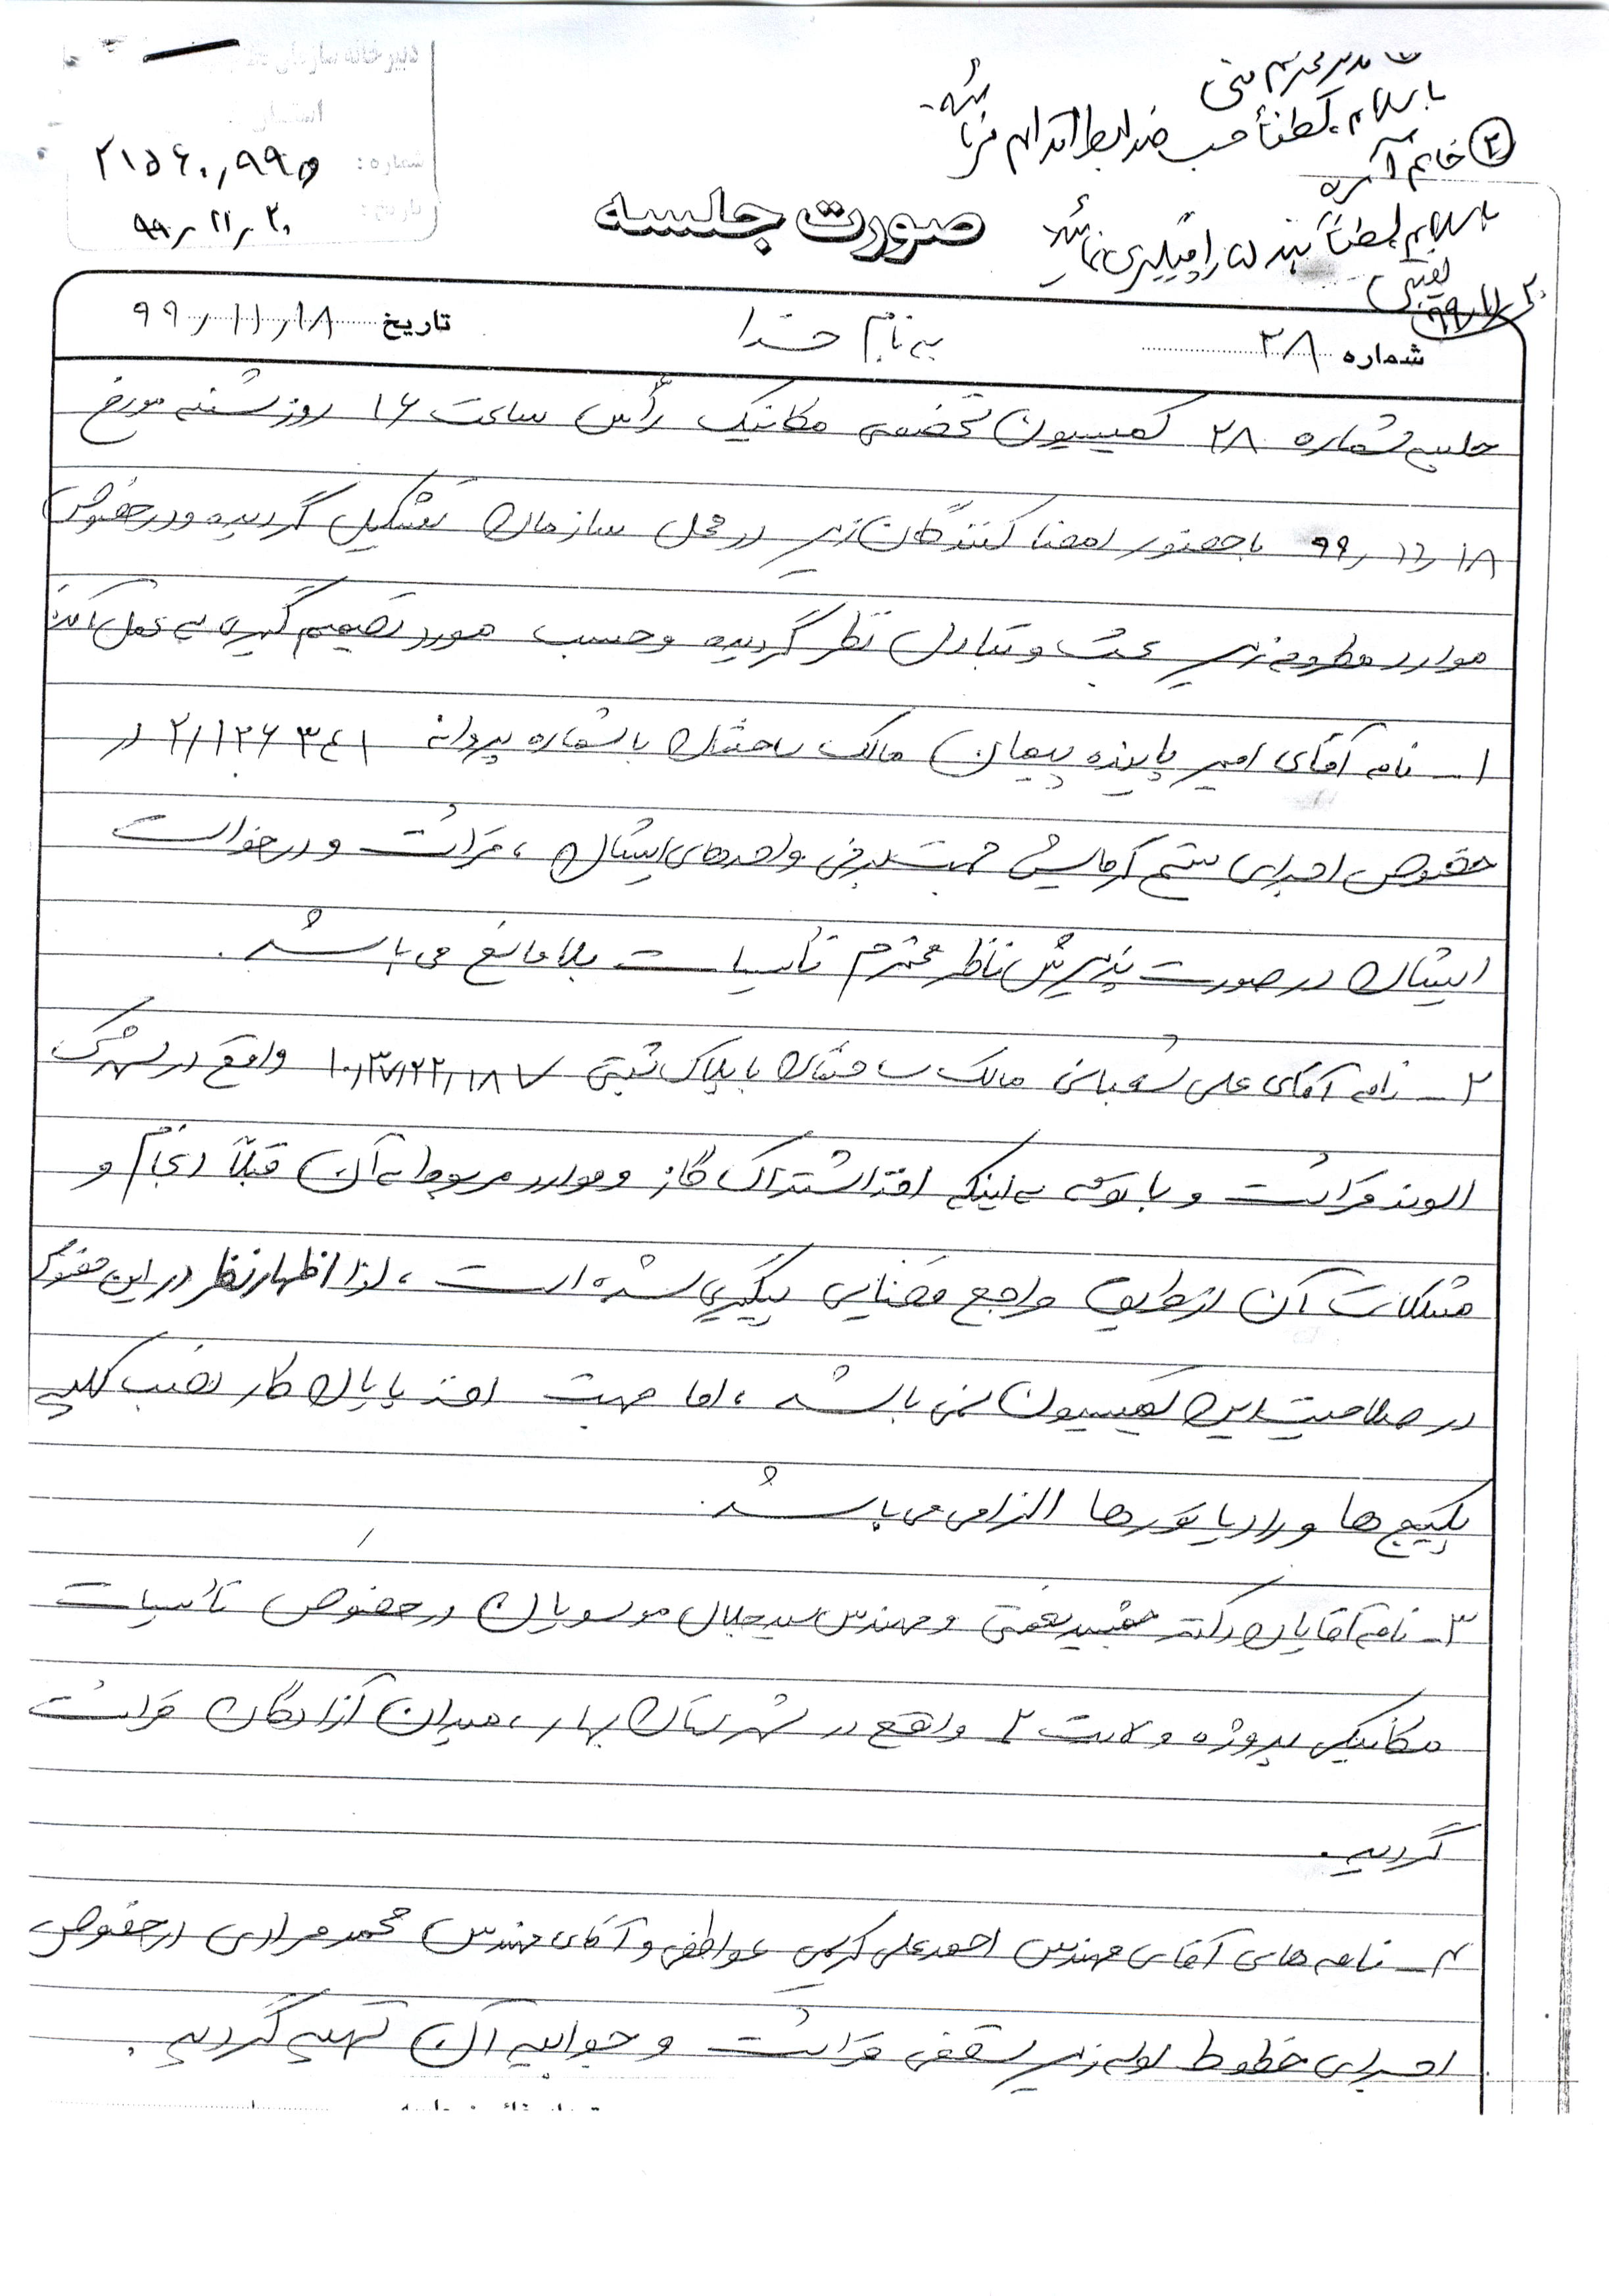 دبیرخانه سازمان
شماره: ۲۱۵۶۰٫۹۹۵
تاریخ: ۹۹٫۱۱٫۲۰
مدیر محترم فنی
با سلام، لطفاً حسب ضوابط اقدام فرمائید
۲ خانم
با سلام لطفاً بند را پیگیری نمائید
۹۹٫۱۱٫۲۰
صورت جلسه
شماره ۲۸ به نام خدا تاریخ ۹۹٫۱۱٫۱۸
جلسه شماره ۲۸ کمیسیون تخصصی مکانیک رأس ساعت ۱۶ روز شنبه مورخ
۹۹٫۱۱٫۱۸ با حضور امضا کنندگان زیر در محل سازمان تشکیل گردیده و در خصوص
موارد مطروحه زیر بحث و تبادل نظر گردیده و حسب مورد تصمیم گیری به عمل آمد:
۱ـ نامه آقای امیر پاینده پیمان مالک ساختمان با شماره پروانه ۲۱۱۲۶۳۴۱ در
خصوص اجرای سیستم گرمایش جهت برخی واحدهای ایشان، قرائت و درخواست
ایشان در صورت پذیرش ناظر محترم تأسیسات بلامانع می باشد.
۲ـ نامه آقای علی شعبانی مالک ساختمان با پلاک ثبتی ۱۰٫۳۷٫۲۲٫۱۸۷ واقع در شهرک
الوند قرائت و با توجه به اینکه اخذ اشتراک گاز و موارد مربوط به آن قبلاً انجام و
مشکلات آن از طریق مراجع قضایی پیگیری شده است، لذا اظهار نظر در این خصوص
در صلاحیت این کمیسیون نمی باشد، اما جهت اخذ پایان کار نصب کلیه
پکیج ها و رادیاتورها الزامی می باشد.
۳ـ نامه آقایان دکتر جمشید نعمتی و مهندس سید جلال موسویان در خصوص تأسیسات
مکانیکی پروژه ولایت ۲ واقع در شهرستان بهار، میدان آزادگان قرائت
گردید.
۴ـ نامه های آقای مهندس احمد علی کریمی عواطفی و آقای مهندس محمد مرادی در خصوص
اجرای خطوط لوله زیر سقفی قرائت و جوابیه آن تهیه گردید.